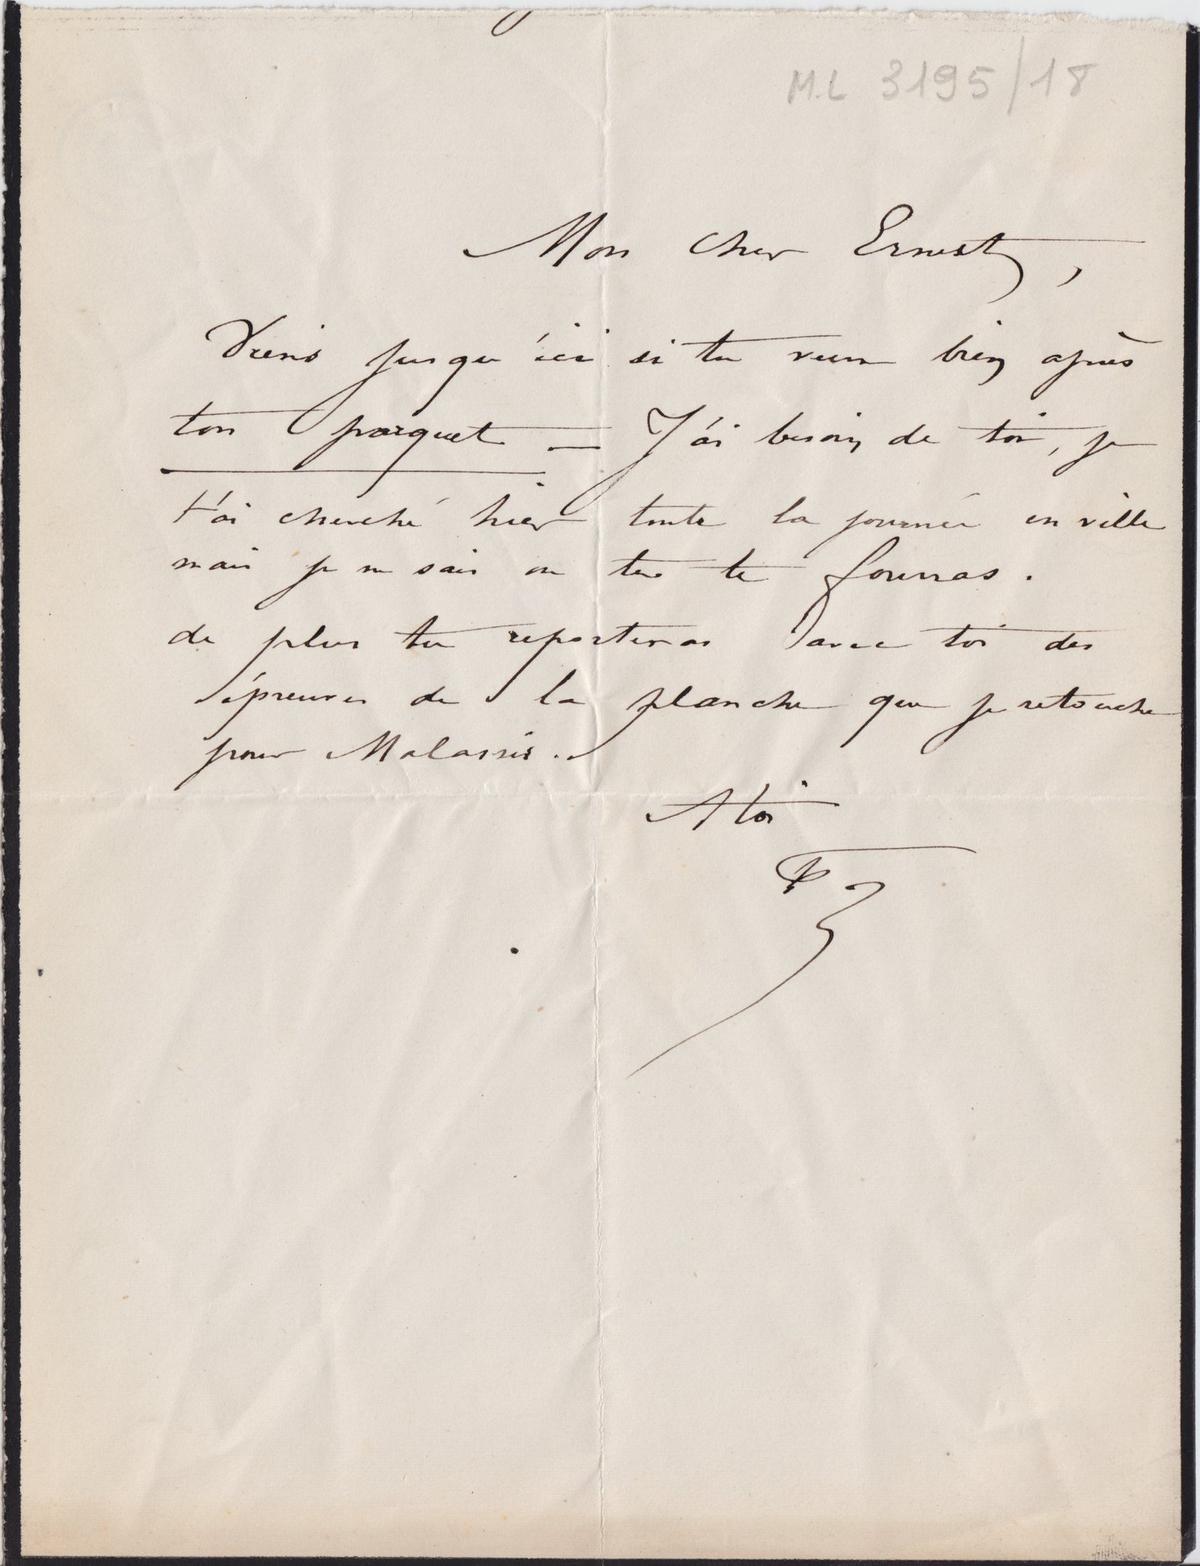 M.L 3195/18
Mon cher Ernest,
Viens jusqu'ici si tu veux bien après
ton parquet — J'ai besoin de toi, je
t'ai cherché hier toute la journée en ville
mais je ne sais où tu te fourras.
de plus tu reporteras avec toi des
épreuves de la planche que je retouche
pour Malassis.
A toi